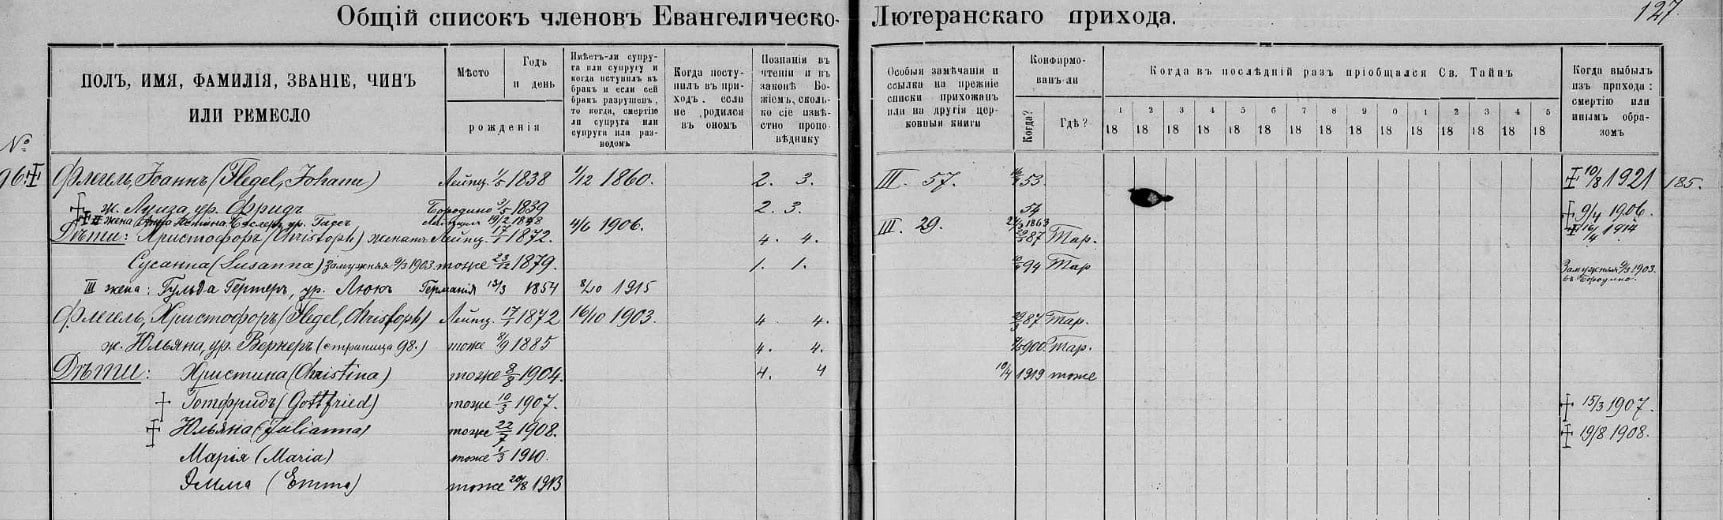 Общій списокъ членовъ Евангелическо-Лютеранскаго прихода.
127
ПОЛЪ, ИМЯ, ФАМИЛІЯ, ЗВАНІЕ, ЧИНЪ
ИЛИ РЕМЕСЛО
Мѣсто
Годъ
и день
рожденія
Имѣетъ-ли супру-
га или супругу и
когда вступилъ въ
бракъ и если сей
бракъ разрушенъ,
то когда, смертію
ли супруга или
супруга или раз-
водомъ
Когда посту-
пилъ въ при-
ходъ, если
не родился
въ ономъ
Познанія въ
чтеніи и въ
законѣ Бо-
жіемъ, сколь-
ко сіе извѣ-
стно пропо-
вѣднику
Особыя замѣчанія и
ссылка на прежніе
списки прихожанъ
или на другія цер-
ковныя книги
Конфирмо-
ванъ-ли
Когда?
Гдѣ?
Когда въ послѣдній разъ пріобщался Св. Таинъ
1 2 3 4 5 6 7 8 9 0 1 2 3 4 5
18 18 18 18 18 18 18 18 18 18 18 18 18 18 18
Когда выбылъ
изъ прихода:
смертію или
инымъ обра-
зомъ
№
96. Флегель, Іоаннъ (Flegel, Johann) Лейпц. 1838 1/12 1860. 2. 3. III. 57. 53 10/8 1921 185.
ж. Луиза, ур. Фридъ Бородино 3/5 1839 2. 3. 54 9/4 1906.
II жена 4/6 1906. 1863 16/4 1914
Дѣти: Христофоръ (Christoph) женатъ Лейпц. 17/7 1872. 4. 4. III. 29. 87 Тар.
Сусанна (Susanna) замужняя 1903 тоже 1879. 1. 1. 94 Тар Замужняя 1903. въ Бородино.
III жена: Гульда Гертеръ, ур. Люкъ Германія 13/3 1854 8/10 1915
Флегель, Христофоръ (Flegel, Christoph) Лейпц. 17/7 1872 16/10 1903. 4. 4. 87 Тар.
ж. Юльяна, ур. Вернеръ (страница 98.) тоже 8/9 1885 4. 4. 900 Тар.
Дѣти: Христина (Christina) тоже 8/8 1904. 4. 4 10/4 1919 тоже
Готфридъ (Gottfried) тоже 10/3 1907. 15/3 1907.
Юльяна (Julianna) тоже 22/7 1908. 19/8 1908.
Марья (Maria) тоже 1/3 1910.
Эмма (Emma) тоже 20/8 1913